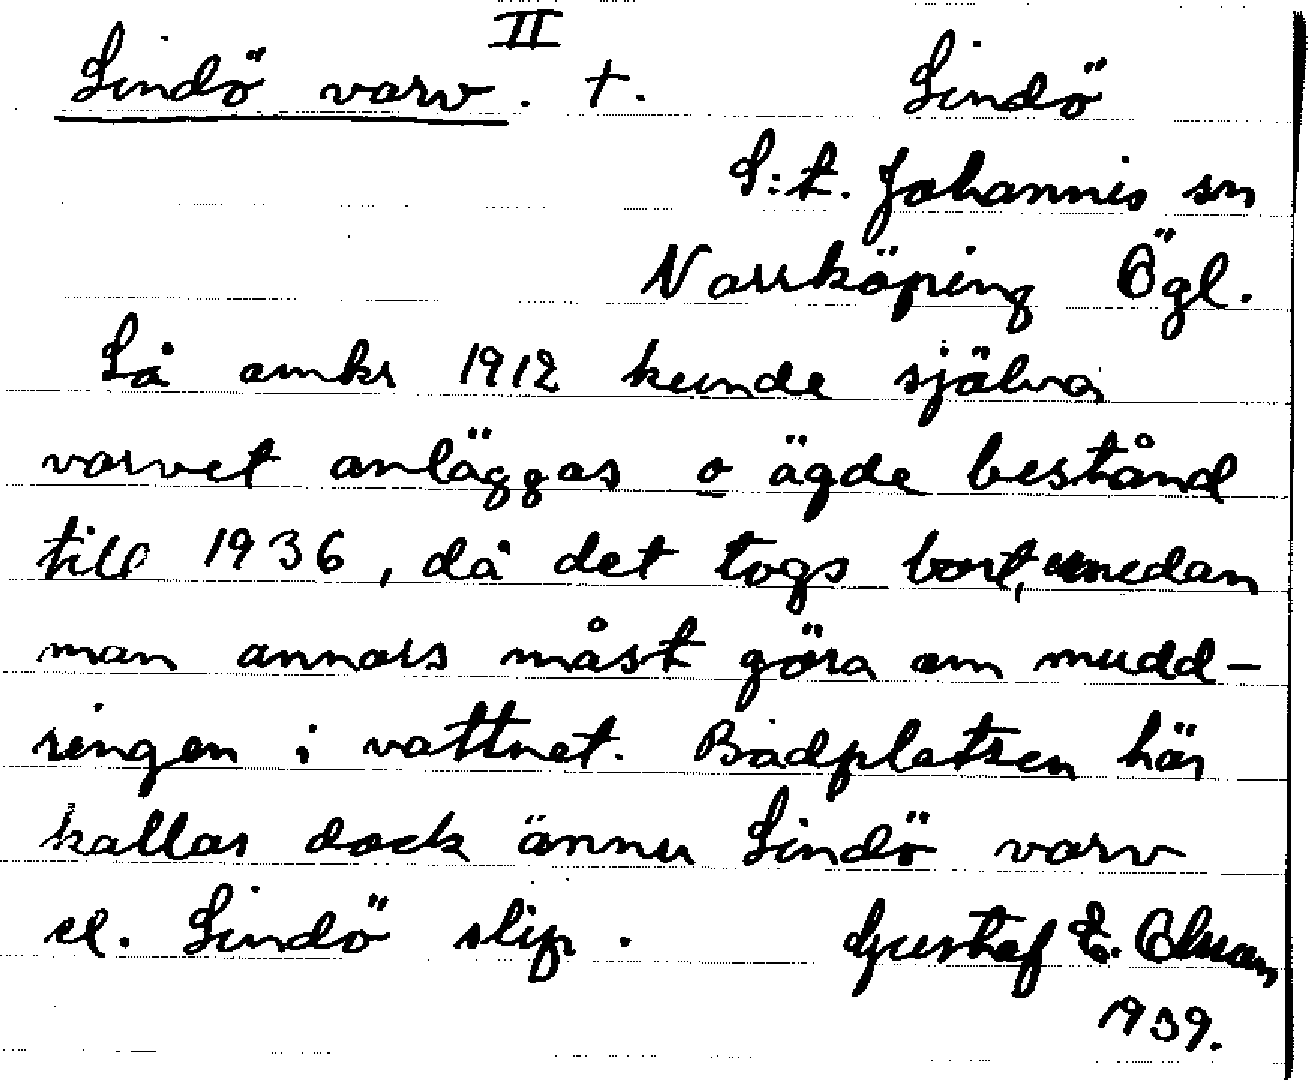 II
Lindö varv. †. Lindö
S:t. Johannis sn
Norrköping Ögl.
Så omkr 1912 kunde själva
varvet anläggas o ägde bestånd
till 1936, då det togs bort, emedan
man annars måst göra om mudd-
ringen i vattnet. Badplatsen här
kallas dock ännu Lindö varv
el. Lindö slip. Gustaf E. Olson,
1939.